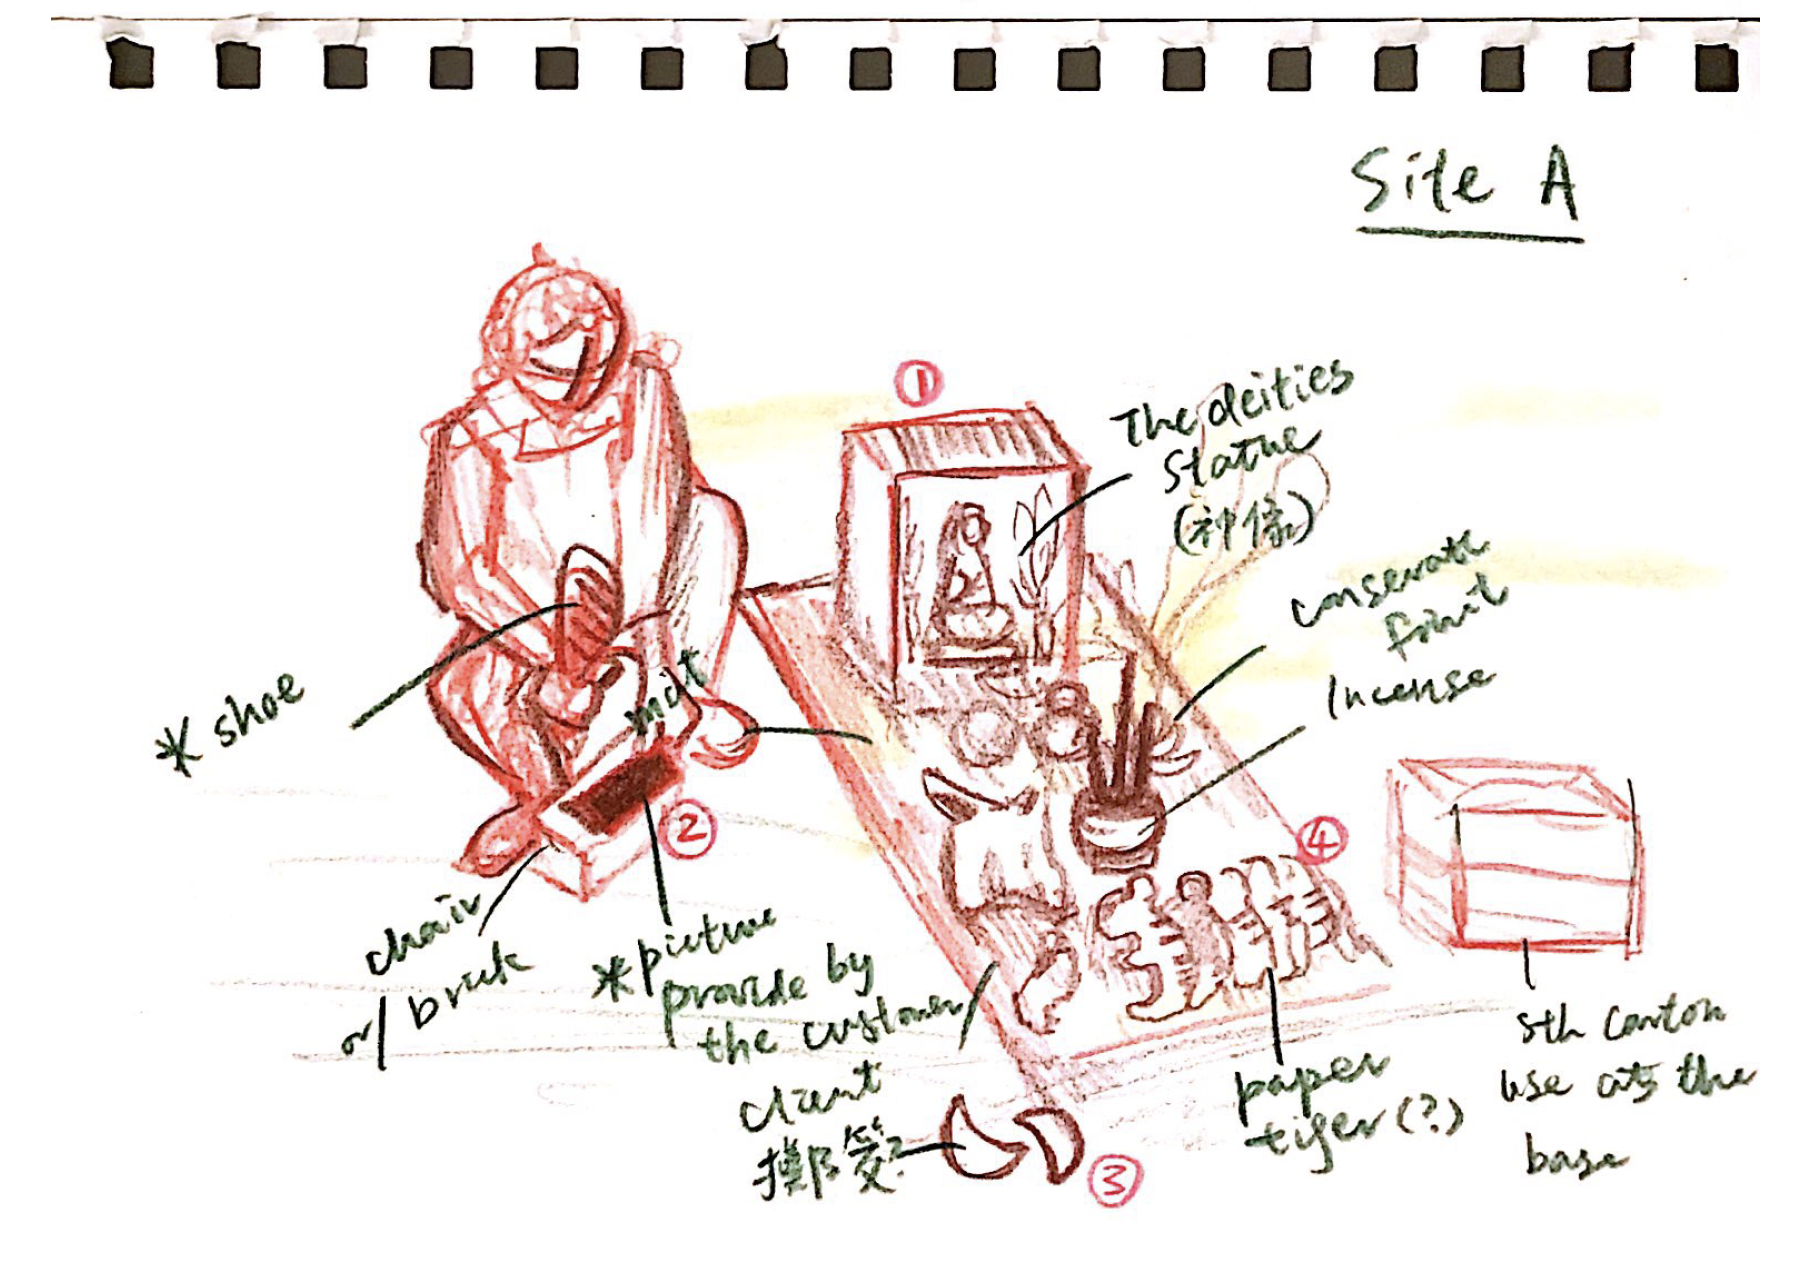 Site A
①
The deities
statue
(神像)
consecrate
fruit
Incense
* shoe
mat
②
④
chair
or / brick
* picture
provide by
the customer/
client
擲筊?
③
paper
tiger (?)
sth carton
use as the
base